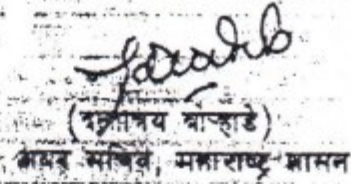 (दत्तात्रय वाऱ्हाडे)
अवर सचिव, महाराष्ट्र शासन